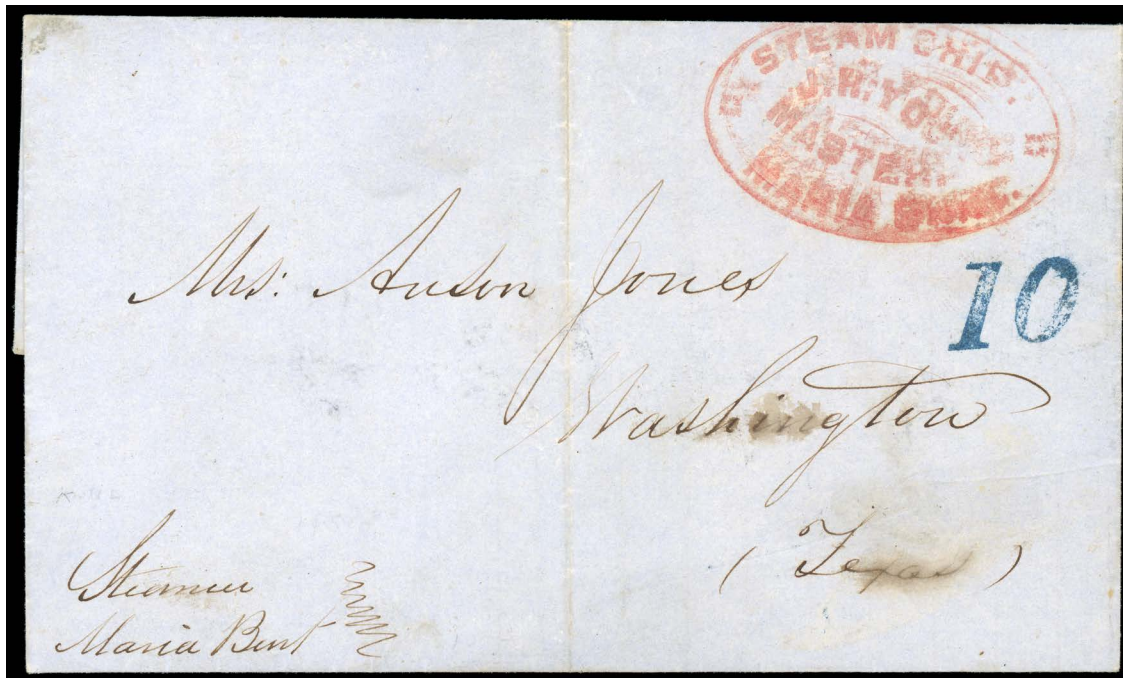 BY STEAM SHIP.
J.H. YOUNG
MASTER.
MARIA BURT.
10
Mrs: Anson Jones
Washington
(Texas)
Steamer
Maria Burt